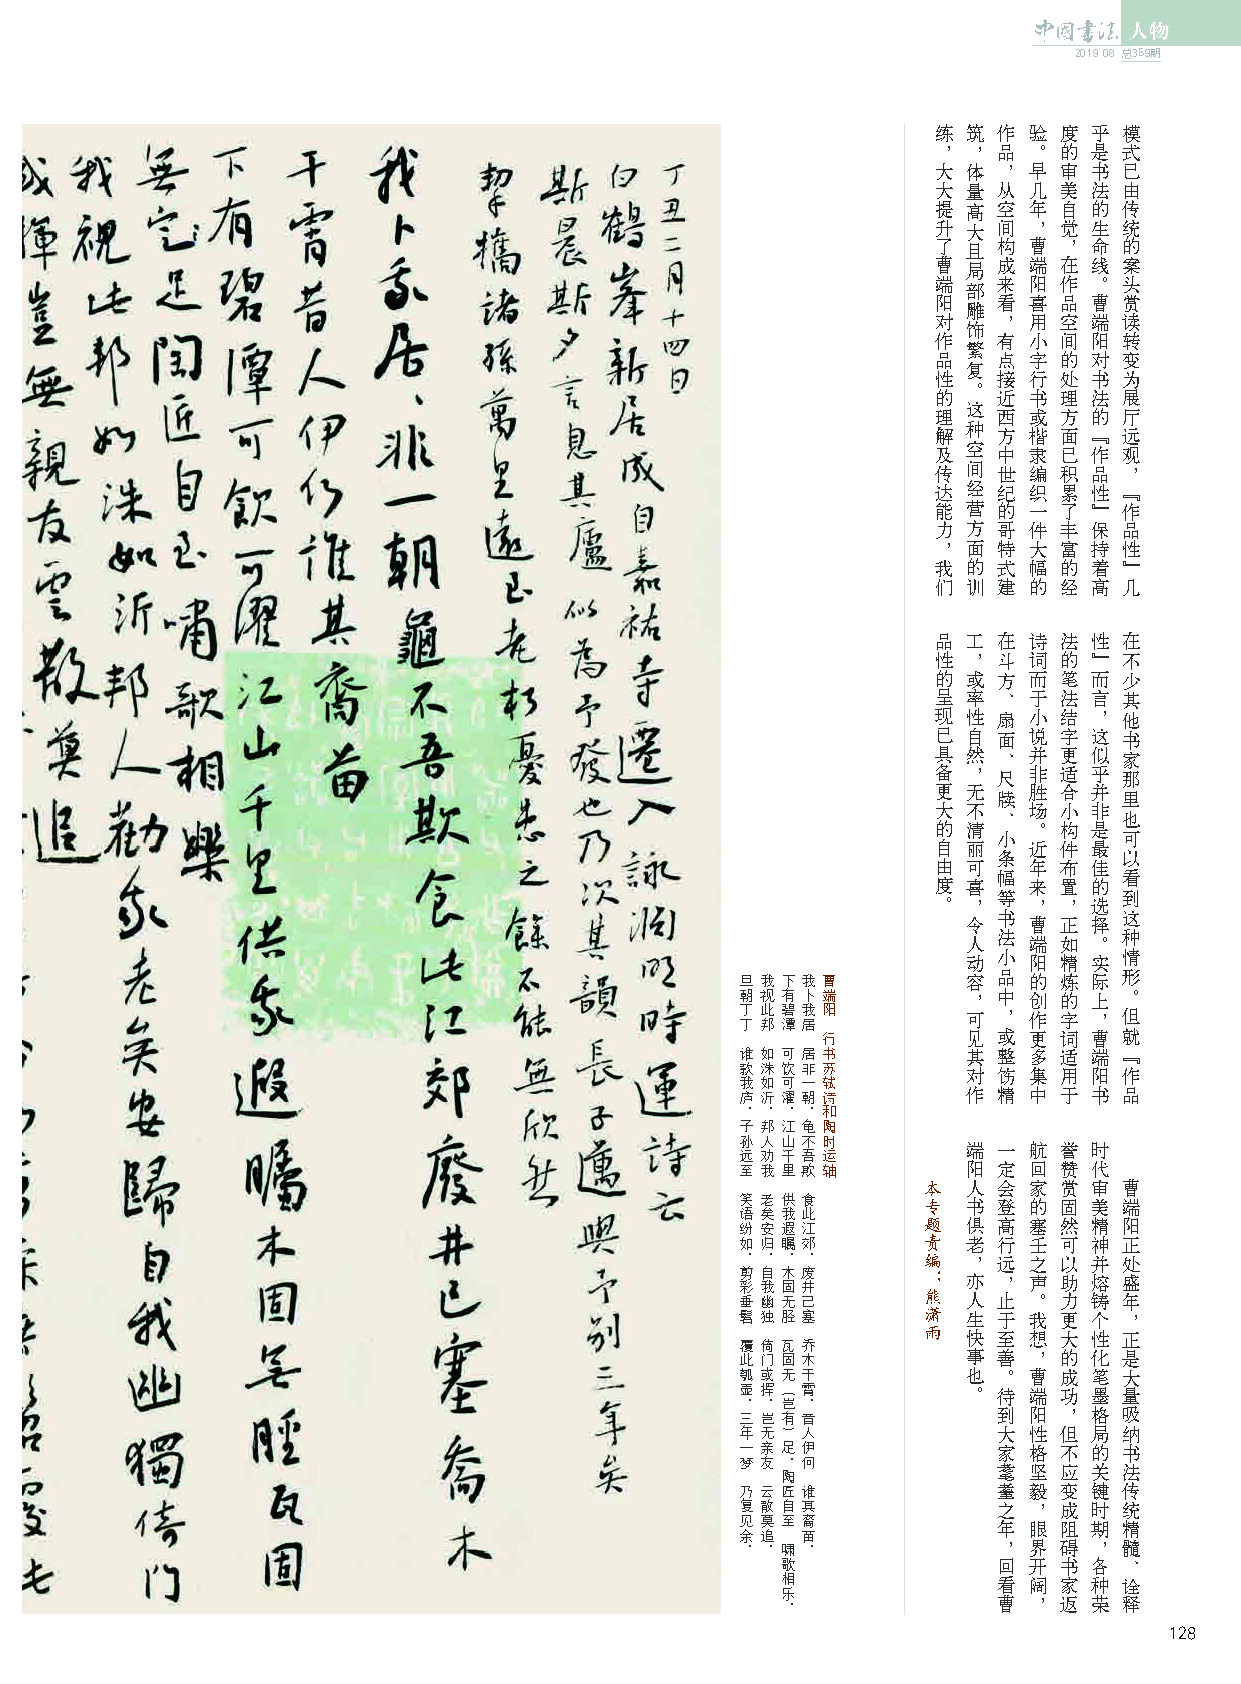 中国书法 人物
2019 08 总359期
模式已由传统的案头赏读转变为展厅远观，『作品性』几
乎是书法的生命线。曹端阳对书法的『作品性』保持着高
度的审美自觉，在作品空间的处理方面已积累了丰富的经
验。早几年，曹端阳喜用小字行书或楷隶编织一件大幅的
作品，从空间构成来看，有点接近西方中世纪的哥特式建
筑，体量高大且局部雕饰繁复。这种空间经营方面的训
练，大大提升了曹端阳对作品性的理解及传达能力，我们
在不少其他书家那里也可以看到这种情形。但就『作品
性』而言，这似乎并非是最佳的选择。实际上，曹端阳书
法的笔法结字更适合小构件布置，正如精炼的字词适用于
诗词而于小说并非胜场。近年来，曹端阳的创作更多集中
在斗方、扇面、尺牍、小条幅等书法小品中，或整饬精
工，或率性自然，无不清丽可喜，令人动容，可见其对作
品性的呈现已具备更大的自由度。
曹端阳正处盛年，正是大量吸纳书法传统精髓、诠释
时代审美精神并熔铸个性化笔墨格局的关键时期，各种荣
誉赞赏固然可以助力更大的成功，但不应变成阻碍书家返
航回家的塞壬之声。我想，曹端阳性格坚毅，眼界开阔，
一定会登高行远，止于至善。待到大家耄耋之年，回看曹
端阳人书俱老，亦人生快事也。
本专题责编：熊潇雨
曹端阳 行书苏轼诗和陶时运轴
我卜我居 居非一朝．龟不吾欺 食此江郊．废井已塞 乔木干霄．昔人伊何 谁其裔苗．
下有碧潭 可饮可濯．江山千里 供我遐瞩．木固无胫 瓦固无（岂有）足．陶匠自至 啸歌相乐．
我视此邦 如洙如沂．邦人劝我 老矣安归．自我幽独 倚门或挥．岂无亲友 云散莫追．
旦朝丁丁 谁款我庐．子孙远至 笑语纷如．剪彩垂髫 覆此瓠壶．三年一梦 乃复见余．
丁丑二月十四日
白鹤峯新居成自嘉祐寺遷入詠淵明時運詩云
斯晨斯夕言息其廬似為予發也乃次其韻長子邁與予别三年矣
挈攜諸孫萬里遠至老朽憂患之餘不能無欣然
我卜我居、非一朝龜不吾欺食此江郊廢井已塞喬木
干霄昔人伊何誰其裔苗
下有碧潭可飲可濯江山千里供我遐矚木固無脛瓦固
無定足陶匠自至嘯歌相樂
我視此邦如洙如沂邦人勸我老矣安歸自我幽獨倚門
或揮豈無親友雲散莫追
128